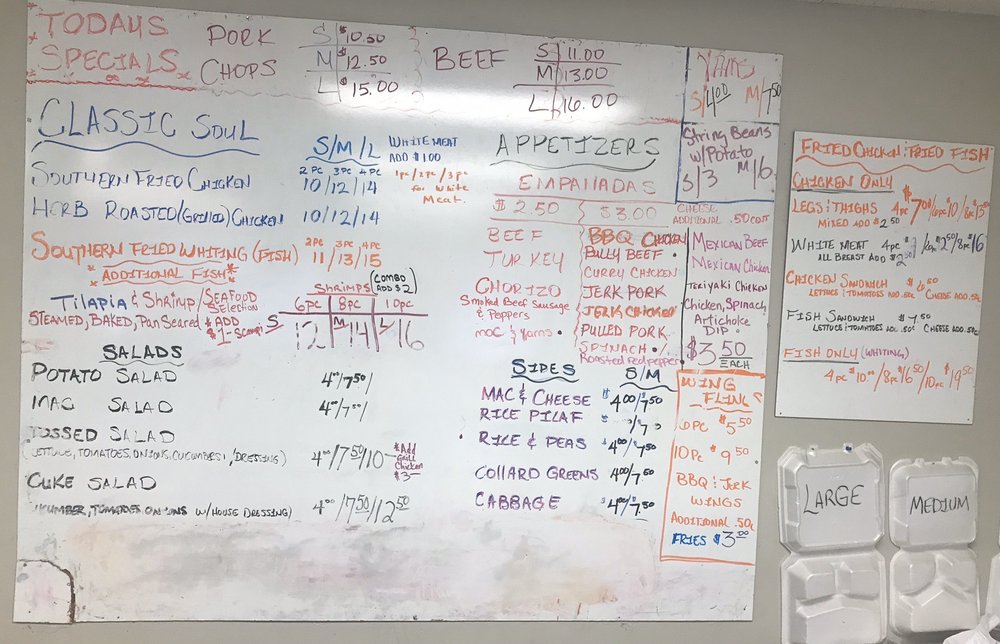 TODAYS
SPECIALS
PORK
CHOPS
S $10.50
M $12.50
L 15.00
BEEF
S 11.00
M 13.00
L 16.00
YAMS
S/4.00 M/7.50
String Beans
w/Potato
S/3 M/6
CLASSIC SOUL
S/M/L
WHITE MEAT
ADD $1.00
2 PC 3PC 4PC
1pc/2pc/3pc
for white
Meat.
SOUTHERN FRIED CHICKEN 10/12/14
HERB ROASTED (GRILLED) CHICKEN 10/12/14
2PC 3PC 4PC
SOUTHERN FRIED WHITING (FISH) 11/13/15
*ADDITIONAL FISH*
SHRIMPS (COMBO ADD $2)
TILAPIA & SHRIMP/SEAFOOD Selection
6pc 8pc 10pc
STEAMED, BAKED, Pan Seared *ADD
$1- Scampi
S 12 M 14 L 16
SALADS
POTATO SALAD 4.00/7.50/
MAC SALAD 4.00/7.50/
TOSSED SALAD
(LETTUCE, TOMATOES, ONIONS, CUCUMBERS, DRESSING) 4.00/7.50/10
*Add
Grill
Chicken
$3-
CUKE SALAD
CUCUMBER, TOMATOES ONIONS W/HOUSE DRESSING) 4.00/7.50/12.50
APPETIZERS
EMPANADAS
$2.50 $3.00
BEEF
TURKEY
CHORIZO
Smoked Beef Sausage
& Peppers
MOC & Yams
BBQ CHICKEN
BULLY BEEF
CURRY CHICKEN
JERK PORK
JERK CHICKEN
PULLED PORK
SPINACH
Roasted red pepper
CHEESE
ADDITIONAL .50 CENT
MEXICAN BEEF
MEXICAN Chicken
Teriyaki Chicken
Chicken, Spinach,
Artichoke
DIP
$3.50
EACH
SIDES S/M
MAC & CHEESE $4.00/7.50
RICE PILAF
RICE & PEAS $4.00/7.50
COLLARD GREENS 4.00/7.50
CABBAGE $4.00/7.50
WING
FLINGS
6PC $5.50
10PC $9.50
BBQ & JERK
WINGS
ADDITIONAL .50¢
FRIES $3.00
FRIED CHICKEN & FRIED FISH
CHICKEN ONLY
LEGS & THIGHS 4pc
MIXED ADD $2.50
WHITE MEAT 4pc
ALL BREAST ADD $2.50
CHICKEN SANDWICH
LETTUCE & TOMATOES ADD .50¢ CHEESE ADD .50¢
FISH SANDWICH $7.50
LETTUCE & TOMATOES ADD .50¢ CHEESE ADD .50¢
FISH ONLY (WHITING)
4pc $10.00/8pc $16.50/10pc $19.50
LARGE
MEDIUM